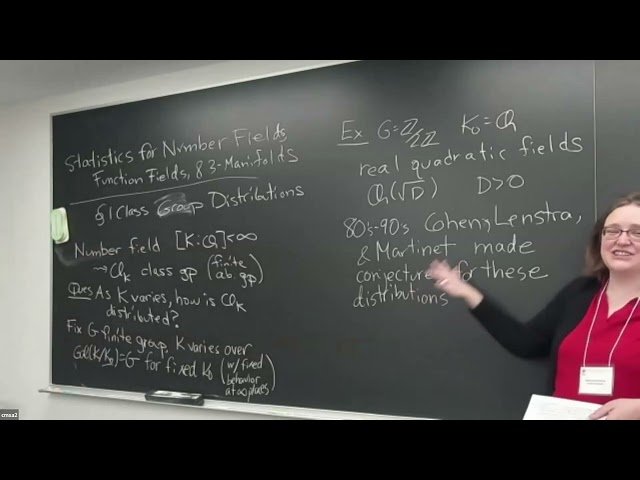 Statistics for Number Fields,
Function Fields, & 3-Manifolds
§1 Class Group Distributions
Number field [K:ℚ]<∞
⇝ Cl_K class gp (finite ab. gp)
Ques As K varies, how is Cl_K
distributed?
Fix G finite group, K varies over
Gal(K/K₀)=G for fixed K₀ (w/ fixed behavior at ∞ places)
Ex G=ℤ/2ℤ K₀=ℚ
real quadratic fields
ℚ(√D) D>0
80's-90's Cohen, Lenstra,
& Martinet made
conjectures for these
distributions
cmsa2